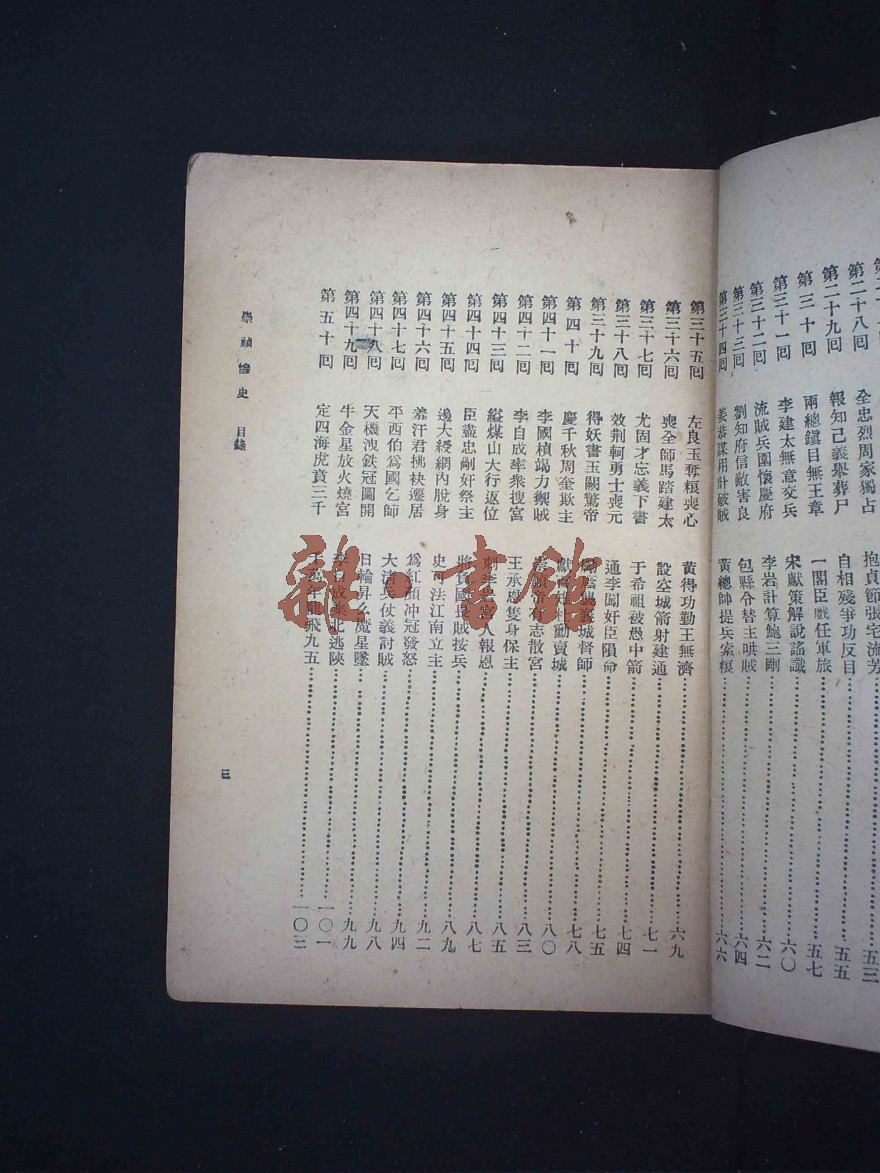 第二十八回 全忠烈周家獨占 抱貞節張宅流芳 五三
第二十九回 報知己義舉葬尸 自相殘爭功反目 五五
第三十回 兩總鎭目無王章 一閣臣戲任軍旅 五七
第三十一回 李建太無意交兵 宋獻策解說謠讖 六〇
第三十二回 流賊兵圍懷慶府 李岩計算鮑三剛 六二
第三十三回 劉知府信敵害良 包縣令替主哄賊 六四
第三十四回 姜恭謀用計破賊 黃總師提兵索糧 六六
第三十五回 左良玉奪糧喪心 黃得功勤王無濟 六九
第三十六回 喪全師馬踏建太 設空城箭射建通 七一
第三十七回 尤固才忘義下書 于希祖被愚中箭 七四
第三十八回 效荆軻勇士喪元 通李闖奸臣隕命 七五
第三十九回 得妖書玉闕驚帝 襄城督師 七八
第四十回 慶千秋周奎欺主 杜勳賣城 八〇
第四十一回 李國楨竭力禦賊 崇禎帝有志散宮 八三
第四十二回 李自成率衆搜宮 王承恩雙身保主 八五
第四十三回 縊煤山大行返位 刺李宮人報恩 八七
第四十四回 臣盡忠剮奸祭主 賣國投賊按兵 八九
第四十五回 邊大綬網內脫身 史可法江南立主 九二
第四十六回 羞汗君拂袂遷居 爲紅顏冲冠發怒 九四
第四十七回 平西伯爲國乞師 大淸兵仗義討賊 九八
第四十八回 天機洩鉄冠圖開 日輪昇么魔星墜 九九
第四十九回 牛金星放火燒宮 李自成棄北逃陝 一〇一
第五十回 定四海虎賁三千 年龍飛九五 一〇三
崇禎慘史 目錄
三